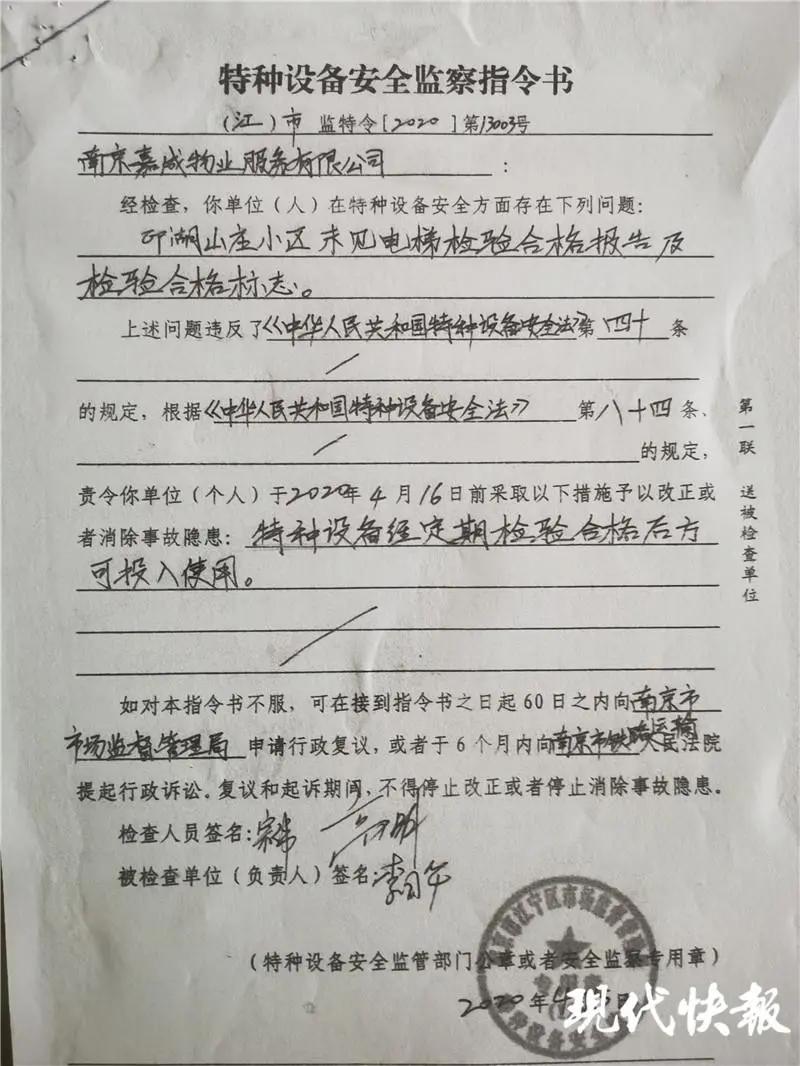 特种设备安全监察指令书
(江)市 监特令[2020]第13003号
南京嘉成物业服务有限公司:
经检查,你单位(人)在特种设备安全方面存在下列问题:
印湖山庄小区未见电梯检验合格报告及
检验合格标志。
上述问题违反了《中华人民共和国特种设备安全法》第四十条
的规定,根据《中华人民共和国特种设备安全法》 第八十四条、
的规定,
责令你单位(个人)于2020年4月16日前采取以下措施予以改正或
者消除事故隐患:特种设备经定期检验合格后方
可投入使用。
如对本指令书不服,可在接到指令书之日起60日之内向南京市
市场监督管理局 申请行政复议,或者于6个月内向南京市铁路运输人民法院
提起行政诉讼。复议和起诉期间,不得停止改正或者停止消除事故隐患。
检查人员签名:
被检查单位(负责人)签名:
(特种设备安全监管部门公章或者安全监察专用章)
2020年4月 日
第一联 送被检查单位
现代快报